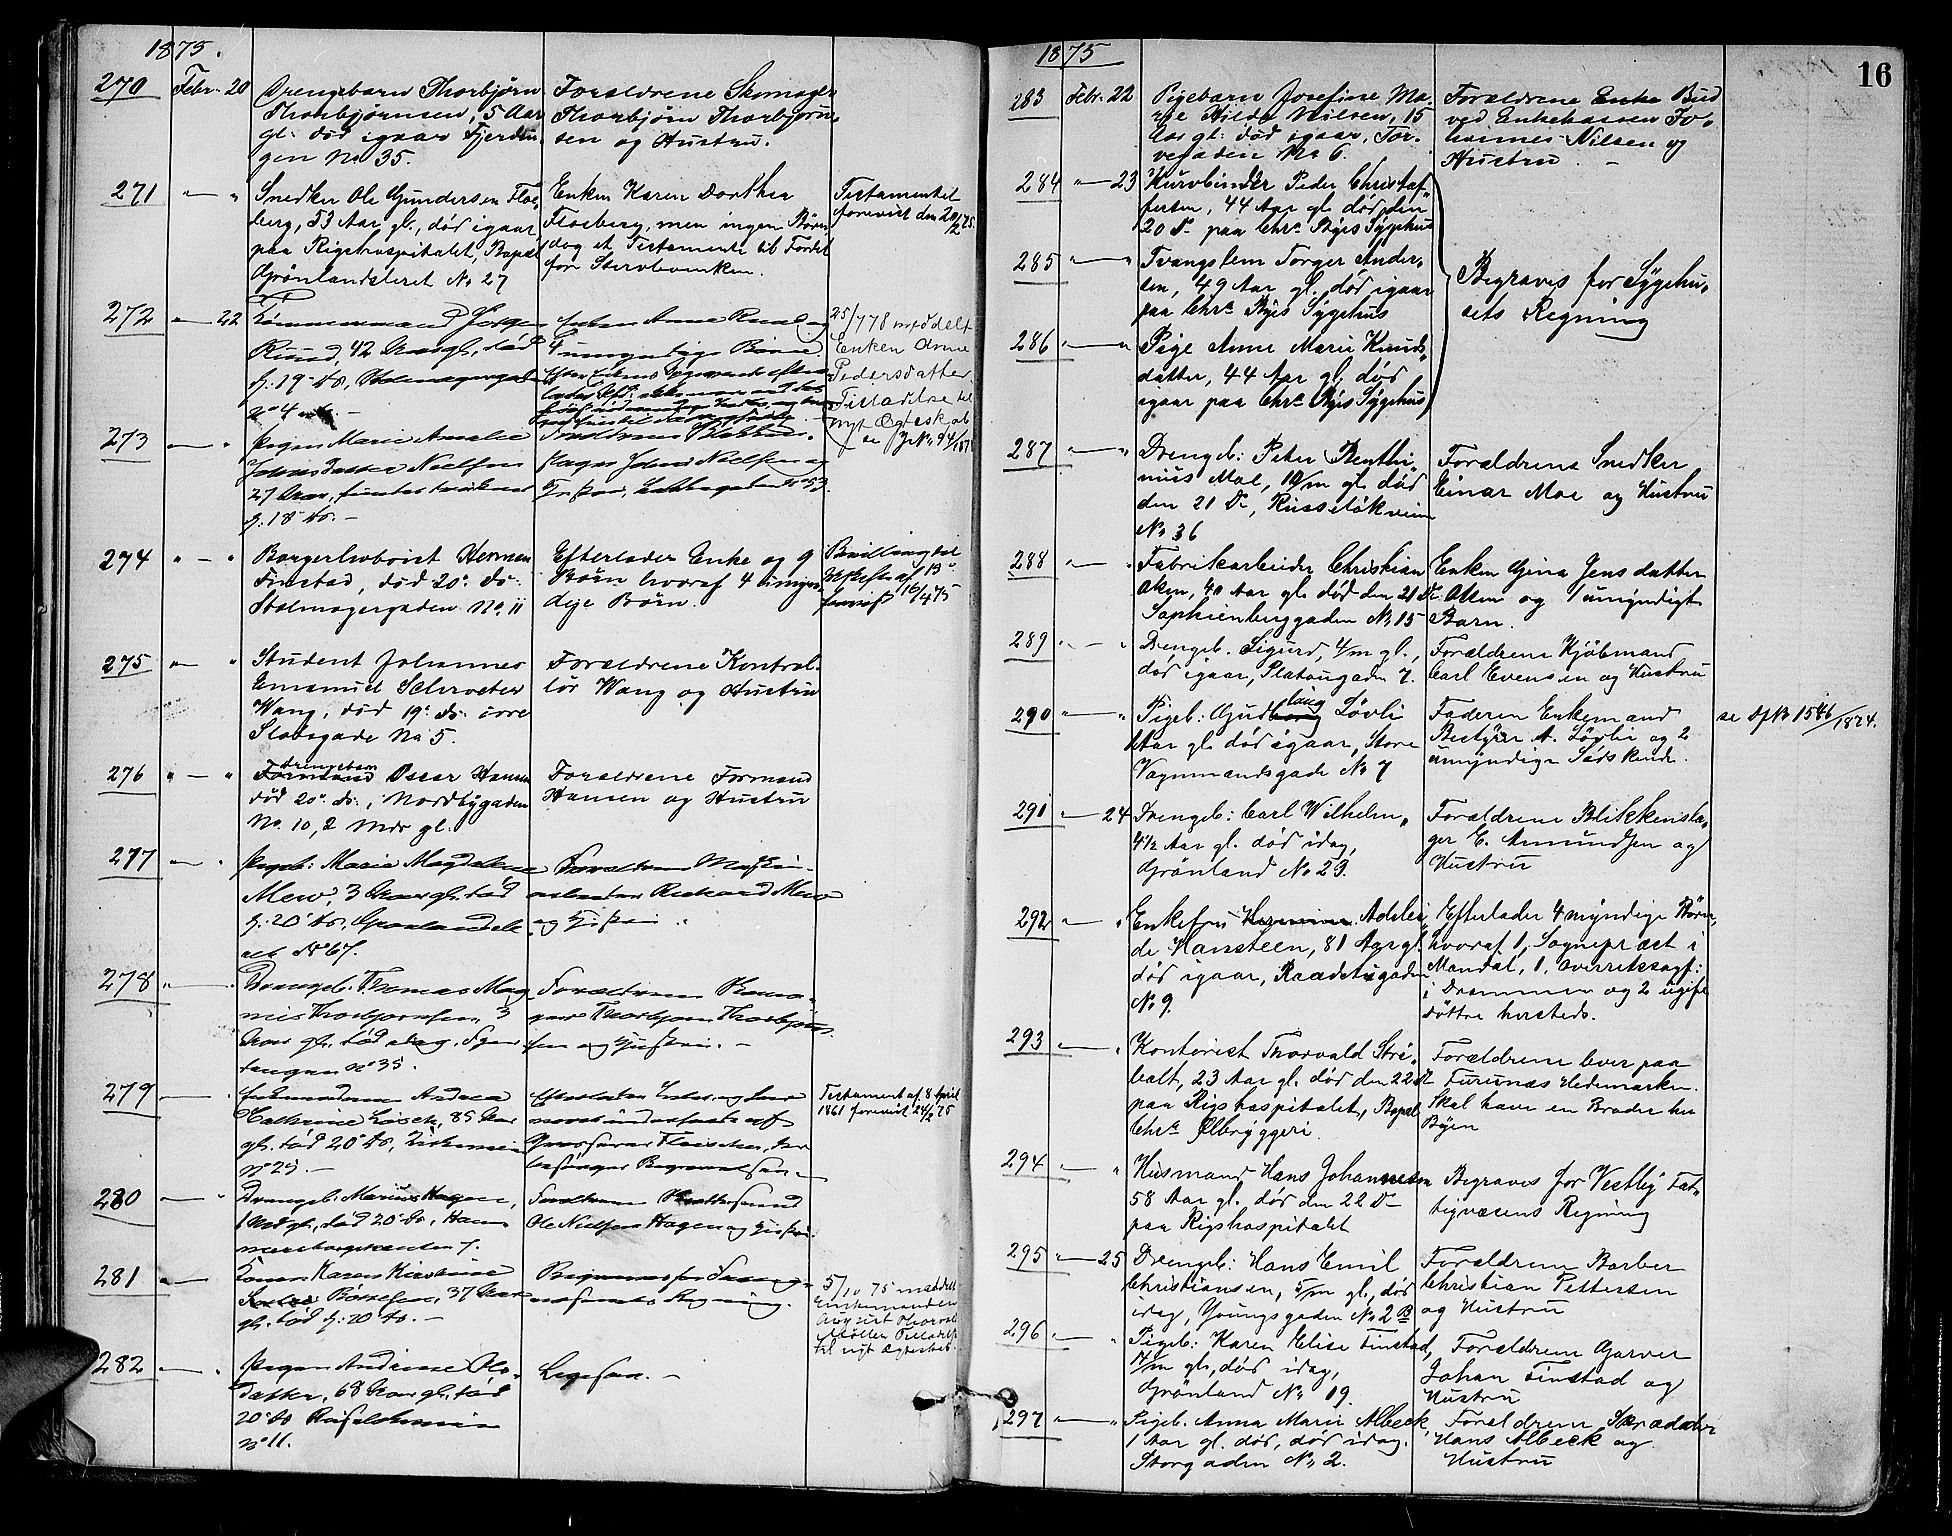 1875.
270 Febr. 20 Drengebarn Thorbjørn
Thorbjørnsen, 5 Aar
gl. død igaar Fjerdin
gen No 35.
Forældrene Skomager
Thorbjørn Thorbjørn
sen og Hustru.
271 " — " Snedker Ole Gundersen Floe
berg, 53 Aar gl., død igaar
paa Rigshospitalet, Bopæl
Grønlandsleret No 27
Enken Karen Dorthea
Floeberg, men ingen Børn,
dog et Testamente til Fordel
for Stervboenken.
Testamentet
forevist den 20/2 75.
272 " — 22 Tømmermand Jørgen
Ruud, 42 Aar gl., død
f: 19 ds, Stolmagergaden
No 4
Enken Anne Ruud og
4 umyndige Børn.
25/7 78 meddelt
Enken Anne
Pedersdatter
Tilladelse til
nyt Ægteskab
se
273 — " Pigen Marie Amalie
Johnsdatter Nielsen
27 Aar,
f: 18 ds. —
Forældrene Blikken-
slager John Nielsen og
No 53.
274 " — " Borgerhoboist Herman
Finstad, død 20 ds.
Stolmagergaden No 11
Efterlader Enke og 9
Børn hvoraf 4 umyn
dige Børn.
Bevilling til
16/4 75
275 " — " Student Johannes
Emanuel Schroeter
Wang, død 19 ds. øvre
Slotsgade No 5.
Forældrene Kontrol-
lør Wang og Hustru
276 " — " drengebarn
Formand Oscar Hansen
død 20 ds., Nordbygaden
No. 10, 2 Mdr gl.
Forældrene Formand
Hansen og Hustru
277 — " Pigeb: Maria Magdalene
Mew, 3 Aar gl. død
f: 20 ds, Grønlandsle
ret No 67.
Forældrene Maskin-
arbeider Richard Mew
og Hustru.
278 " — Drengeb. Thomas Mag
nus Thorbjørnsen, 3
Aar gl. død idag,
No 35.
Forældrene Skoma-
ger Thorbjørn Thorbjørn
sen og Hustru. —
279 — Andrea
Cathrine 85 Aar
gl. død 20 ds,
No 29. —
Efterlader
Grosserer Fleischer, der
besørger Begravelsen. —
Testament af 8 April
1861 forevist 24/2 75
280 — " Drengeb: Marius Hagen,
1 Md gl., død 20 ds, Ham
mersborgskanten 7.
Forældrene
Ole Nielsen Hagen og Hustru.
281 — Konen Karen Kirstine
37 Aar
gl. død f: 20 ds. —
Begraves for Fattig-
væsenets Regning.
5/10 75 meddelt
Enkemanden
August Thorvald
Møller Tilladelse
til nyt Ægteskab.
282 — " Pigen Andrine Ols-
datter, 68 Aar gl. død
20 ds Ruseløkveien
No 11.
Legesen. —
1875
16
283 Febr. 22 Pigebarn Josefine Ma-
rie Hilda Nilsen, 15
Aar gl: død igaar, Tor-
vegaden No 6.
Forældrene Enke Bud
ved Enkekassen Jo-
hannes Nilsen og
Hustru. —
284 " — 23 Kurvbinder Peder Christof-
fersen, 44 Aar gl. død den
20 ds. paa Chra Byes Sygehus
285 " — " Tvangslem Torger Ander-
sen, 49 Aar gl. død igaar
paa Chra Byes Sygehus
286 " — " Pige Anne Marie Knuds-
datter, 44 Aar gl. død
igaar paa Chra Byes Sygehus
Begraves for Sygehu-
sets Regning
287 " — " Drengeb: Peter Benthi-
nius Moe, 10/m gl. død
den 21 Ds, Russeløkveien
No 36
Forældrene Snedker
Einar Moe og Hustru
288 " — " Fabrikarbeider Christian
Olsen, 40 Aar gl. død den 21 Ds
Sophienberggaden No 15
Enken Gina Jensdatter
Olsen og 1 umyndigt
Barn.
289 " — " Drengeb. Sigurd, 4/m gl.,
død igaar, Platousgaden 7.
Forældrene Kjøbmand
Carl Evensen og Hustru
290 " — " Pigeb: Gudlaug Løvli
Aar gl. død igaar, Store
Vognmandsgade No 7
Faderen Enkemand
Bestyrer A. Løvlie og 2
umyndige Sødskende.
se Dfk 1586/1874.
291 " — 24 Drengeb: Carl Wilhelm,
4 1/2 Aar gl. død idag,
Grønland No 23.
Forældrene Blikkensla-
ger E. Amundsen og
Hustru
292 " — " Enkefru Hermine Adelei-
de Hansteen, 81 Aar gl.
død igaar, Raadstugaden
No 9.
Efterlader 4 myndige Børn,
hvoraf 1, Sognepræst i
Mandal, 1, Overretssagf:
i Drammen og 2 ugifte
døttre hersteds.
293 " — " Kontorist Thorvald Stri-
bolt, 23 Aar gl. død den 22 ds
paa Rigshospitalet, Bopæl
Chra Ølbryggeri.
Forældrene lever paa
Furunæs Hedemarken.
Skal have en Broder her
i Byen
294 " — " Husmand Hans Johannesen
58 Aar gl. død den 22 Ds
paa Rigshospitalet
Begraves for Vestby Fat-
tigvæsens Regning
295 " — 25 Drengeb: Hans Emil
Christiansen, 5/m gl, død
idag, Youngsgaden No 2 B
Forældrene Barber
Christian Pettersen
og Hustru
296 " — " Pigeb: Karen Elise Finstad,
/m gl, død idag,
Grønland No 19.
Forældrene Garver
Johan Finstad og
Hustru
297 " — " Pigeb. Anna Marie Albeck,
1 Aar gl. død, død idag.
Storgaden No 2.
Forældrene Skrædder
Hans Albeck og
Hustru